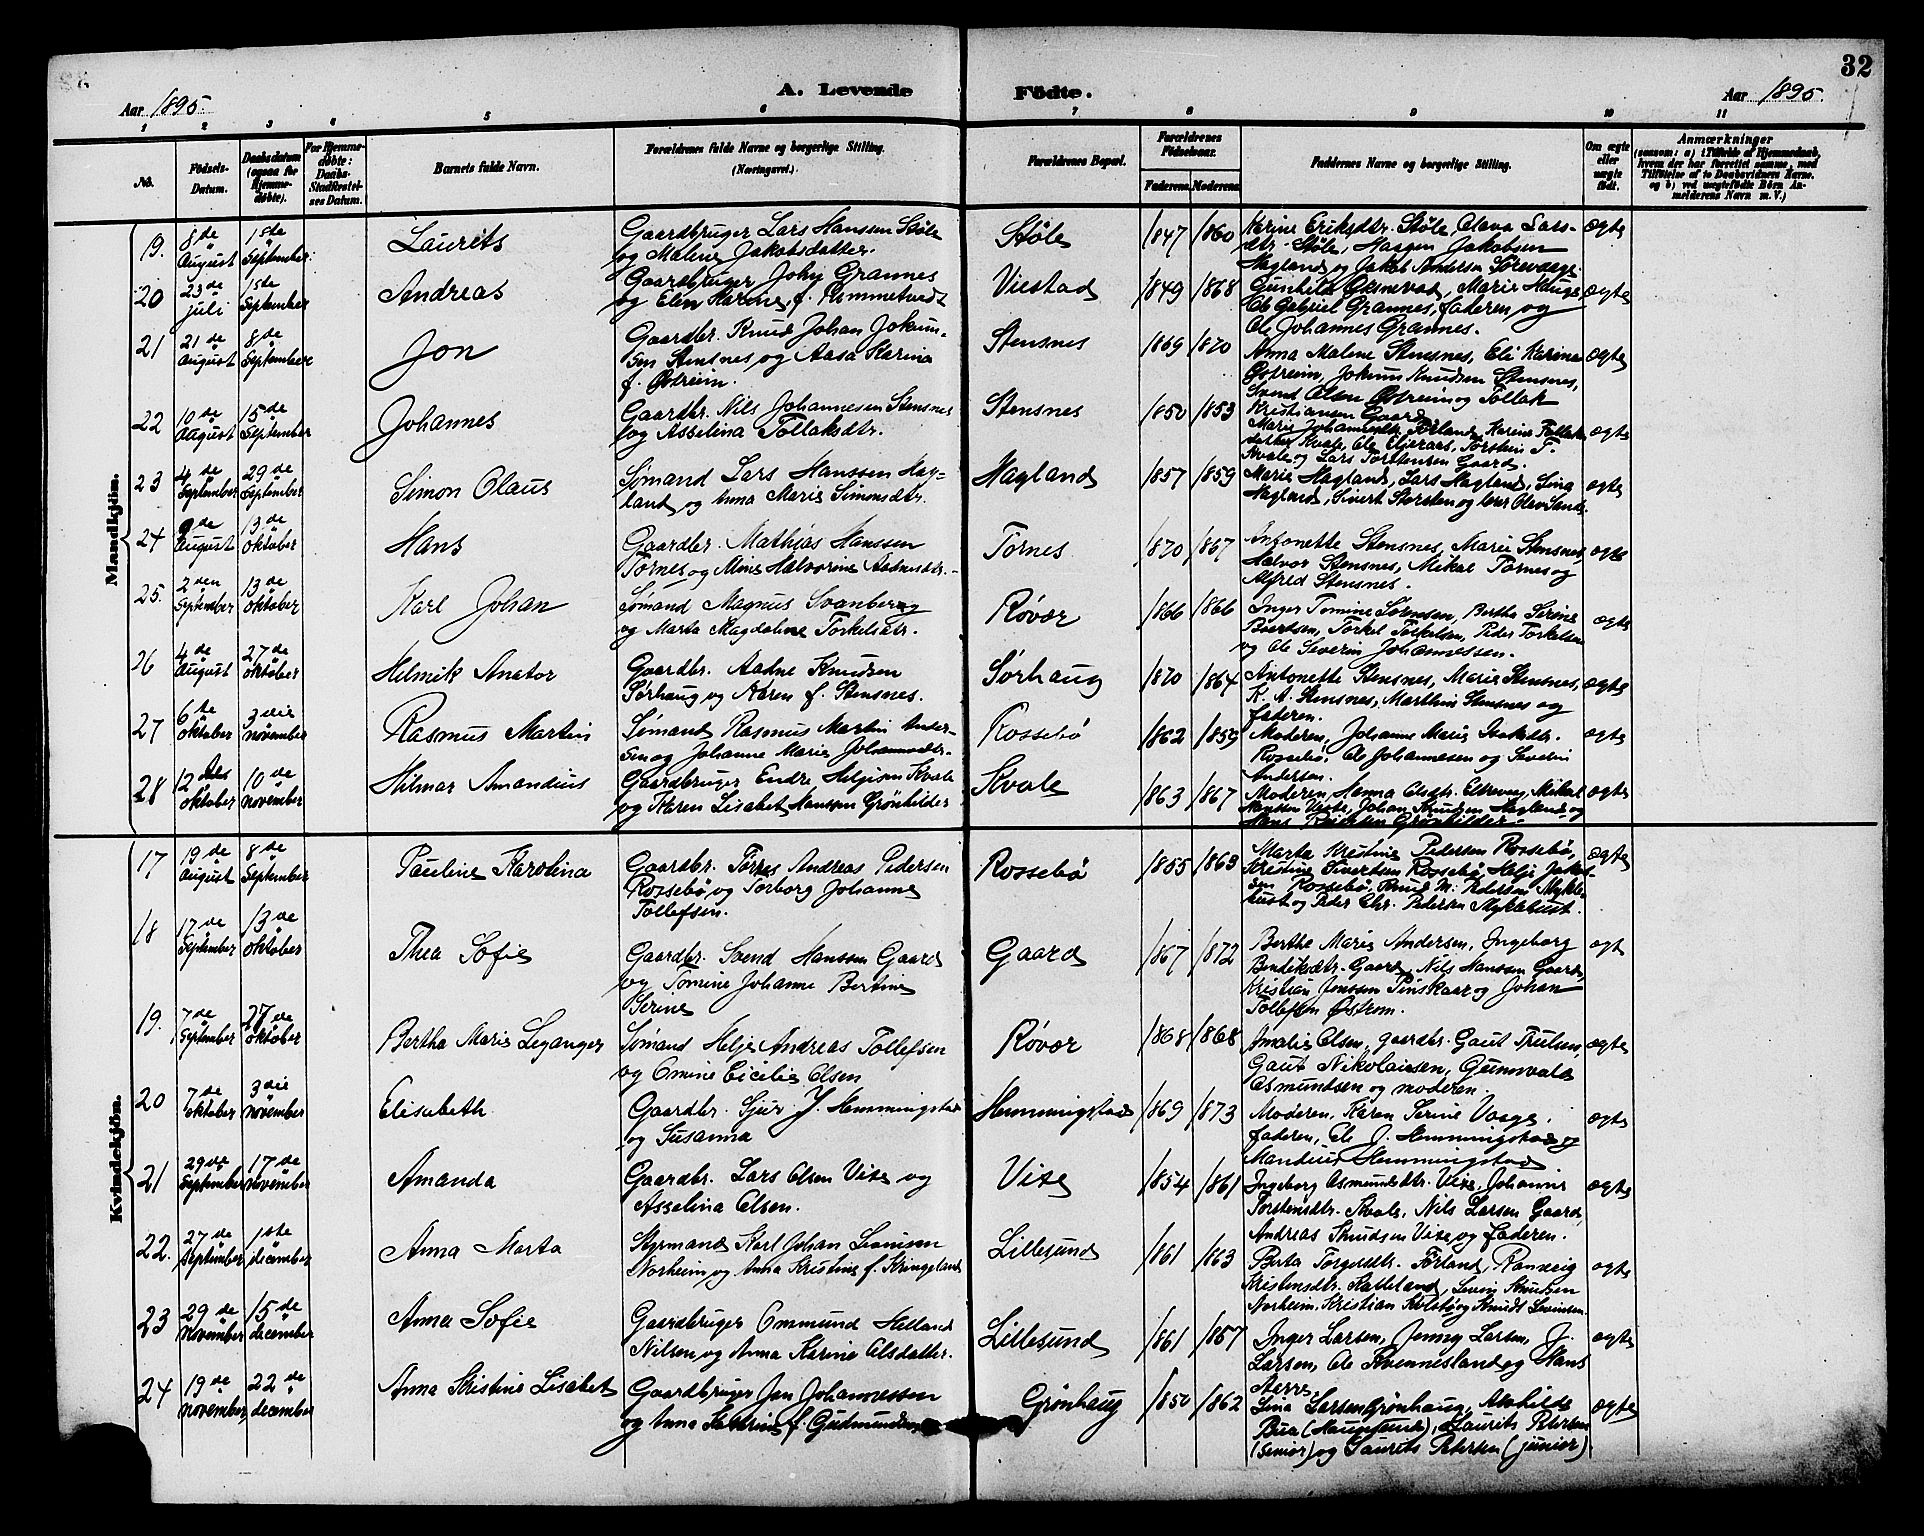 32
A. Levende Födte.
Aar 1895.
Aar 1895.
1 2 3 4 5 6 7 8 9 10 11
No.
Födsels-Datum.
Daabsdatum (ogsaa for Hjemmedöbte).
For Hjemmedöbte: Daabs-Stadfæstelses Datum.
Barnets fulde Navn.
Forældrenes fulde Navne og borgerlige Stilling. (Næringsvei.)
Forældrenes Bopæl.
Forældrenes Födselsaar.
Faderens. Moderens.
Faddernes Navne og borgerlige Stilling.
Om ægte eller uægte födt.
Anmærkninger
Mandkjön.
19. 8de August 1ste September Laurits Gaardbruger Lars Hanssen Støle Støle 1847 1860 Karine Eriksdtr. Støle, Olava Lars- ægte
og Malene Jakobsdatter. dtr. Støle, Haagen Jakobsen
Hagland og Jakob Andersen Sørevaage.
20 23de juli 1ste September Andreas Gaardbruger John Grannes Viestad 1849 1868 Marie Hauge ægte
og Elen Karine f. Ole Gabriel Grannes, faderen og
Ole Johannes Grannes.
21 21de August 8de September Jon Gaardbr. Knud Johan Jokum- Stensnes 1869 1870 Anna Malene Stensnes, Eli Karina ægte
sen Stensnes og Aasa Karina Østreim, Jokum Knudsen Stensnes,
f. Østreim. Svend Olsen Østreim og Tollak
Kristiansen Gaard
22 10de August 15de September Johannes Gaardbr. Nils Johannesen Stensnes Stensnes 1850 1853 Marie Førland, Karine Tollak ægte
og Asselina Tollaksdtr. datter Kvale, Ole Eljeraas, Torsten T.
Kvale og Lars Torstensen Gaard.
23 4de September 29de September Simon Olaus Sømand Lars Hanssen Hag- Hagland 1857 1859 Marie Hagland, Lars Hagland, Lina ægte
land og Anna Marie Simonsdtr. Hagland, Sivert Storsten og Iver Olsen Sund.
24 August 13de oktober Hans Gaardbr. Mathias Hanssen Tornes 1870 1867 Antonette Stensnes, Marie Stensnes, ægte
Tornes og Mene Halvorine Aadnesdtr. Halvor Stensnes, Mikal Tornes og
Alfred Stensnes.
25. 2den September 13de oktober Karl Johan Sømand Magnus Svanberg Røvær 1866 1866 Inger Tomine Sørensen, Bertha Serine ægte
og Marta Magdalene Torkelsdtr. Baertsen, Torkel Torkelsen, Peder Torkelsen
og Ole Severin Johannessen.
26 4de August 27de oktober Helmik Anator Gaardbr. Aadne Knudsen Sørhaug 1870 1864 Antonette Stensnes, Marie Stensnes, ægte
Sørhaug og Karen f. Stensnes. K. A. Stensnes, Marthin Stensnes og
faderen.
27 6te oktober 3die november Rasmus Martin Sømand Rasmus Martin Ander- Rossebø 1862 1859 Moderen, Johanne Marie Isaksdtr. ægte
sen og Johanne Marie Johannesdtr. Rossebø, Ole Johannesen og Severin
Andersen.
28 12te oktober 10de november Hilmar Amandius Gaardbruger Endre Helgesen Kvale Kvale 1863 1867 Moderen, Hanna Olsdtr. Mikal ægte
og Karen Lisabet Hanssen Grönhilder Hanssen Johan Knudsen Hagland og
Hans Knudsen Grønhilder.
Kvindekjön.
17 19de August 8de September Pauline Karolina Gaardbr. Tørres Andreas Pedersen Rossebø 1855 1863 Marta Kristine Pedersen Rossebø, ægte
Rossebø og Torborg Johanne Kristine Sivertsen Rossebø, Helje Jakob-
Tollefsen. sen Rossebø, Knud M. Pedersen Mykle-
bust og Peder Chr. Pedersen Myklebust.
18 17de September 13de oktober Thea Sofie Gaardbr. Svend Hanssen Gaard Gaard 1867 1872 Berthe Marie Andersen, Ingeborg ægte
og Tomine Johanne Bertine Bendiksdtr. Gaard, Nils Hanssen Gaard,
Serine Kristian Jenssen Tinskaar og Johan
Tollefsen Østrem.
19. 7de September 27de oktober Bertha Marie Leganger Sømand Helje Andreas Tollefsen Røvær 1868 1868 Amalie Olsen, gaardbr. Gaut Trulsen, ægte
og Omine Cicelie Olsen Gaut Nikolaisen, Gunnvald
Osmundsen og moderen.
20 7de oktober 3die november Elisabeth Gaardbr. Sjur J. Hemmingstad Hemmingstad 1869 1873 Moderen, Karen Serine Vaage, ægte
og Susanna faderen, Ole J. Hemmingstad og
Hemmingstad
21 29de September 17de november Amanda Gaardbr. Lars Olsen Vixe og Vixe 1854 1861 Ingeborg Osmundsdtr. Vixe, Johanne ægte
Asselina Olsen. Torstensdtr. Kvale, Nils Larsen Gaard,
Andreas Knudsen Vixe og faderen.
22. 27de September 1ste december Anna Marta Styrmand Karl Johan Levinsen Lillesund 1861 1863 Berta Torgersdtr. Førland, Ranveig ægte
Norheim og Anna Kristine f. Kringeland Kristensdtr. Kalleland, Levin Knudsen
Norheim, Kristian Kolsbø og Knudt Levinsen.
23 29de november 15de december Anna Sofie Gaardbruger Ommund Helland Lillesund 1861 1857 Inger Larsen, Jenny Larsen, J. ægte
Nilsen og Anna Karine Olsdatter. Larsen, Ole Kvennesland og Hans
Aerre,
24 19de november 22de december Anna Kristine Lisabet Gaardbruger Jan Johannessen Grønhaug 1850 1862 Lina Larsen Grønhaug, ægte
og Anna Katrine f. Gudmundsen Bua (Haugesund), Laurits Petersen
(senior) og Laurits Petersen (junior).